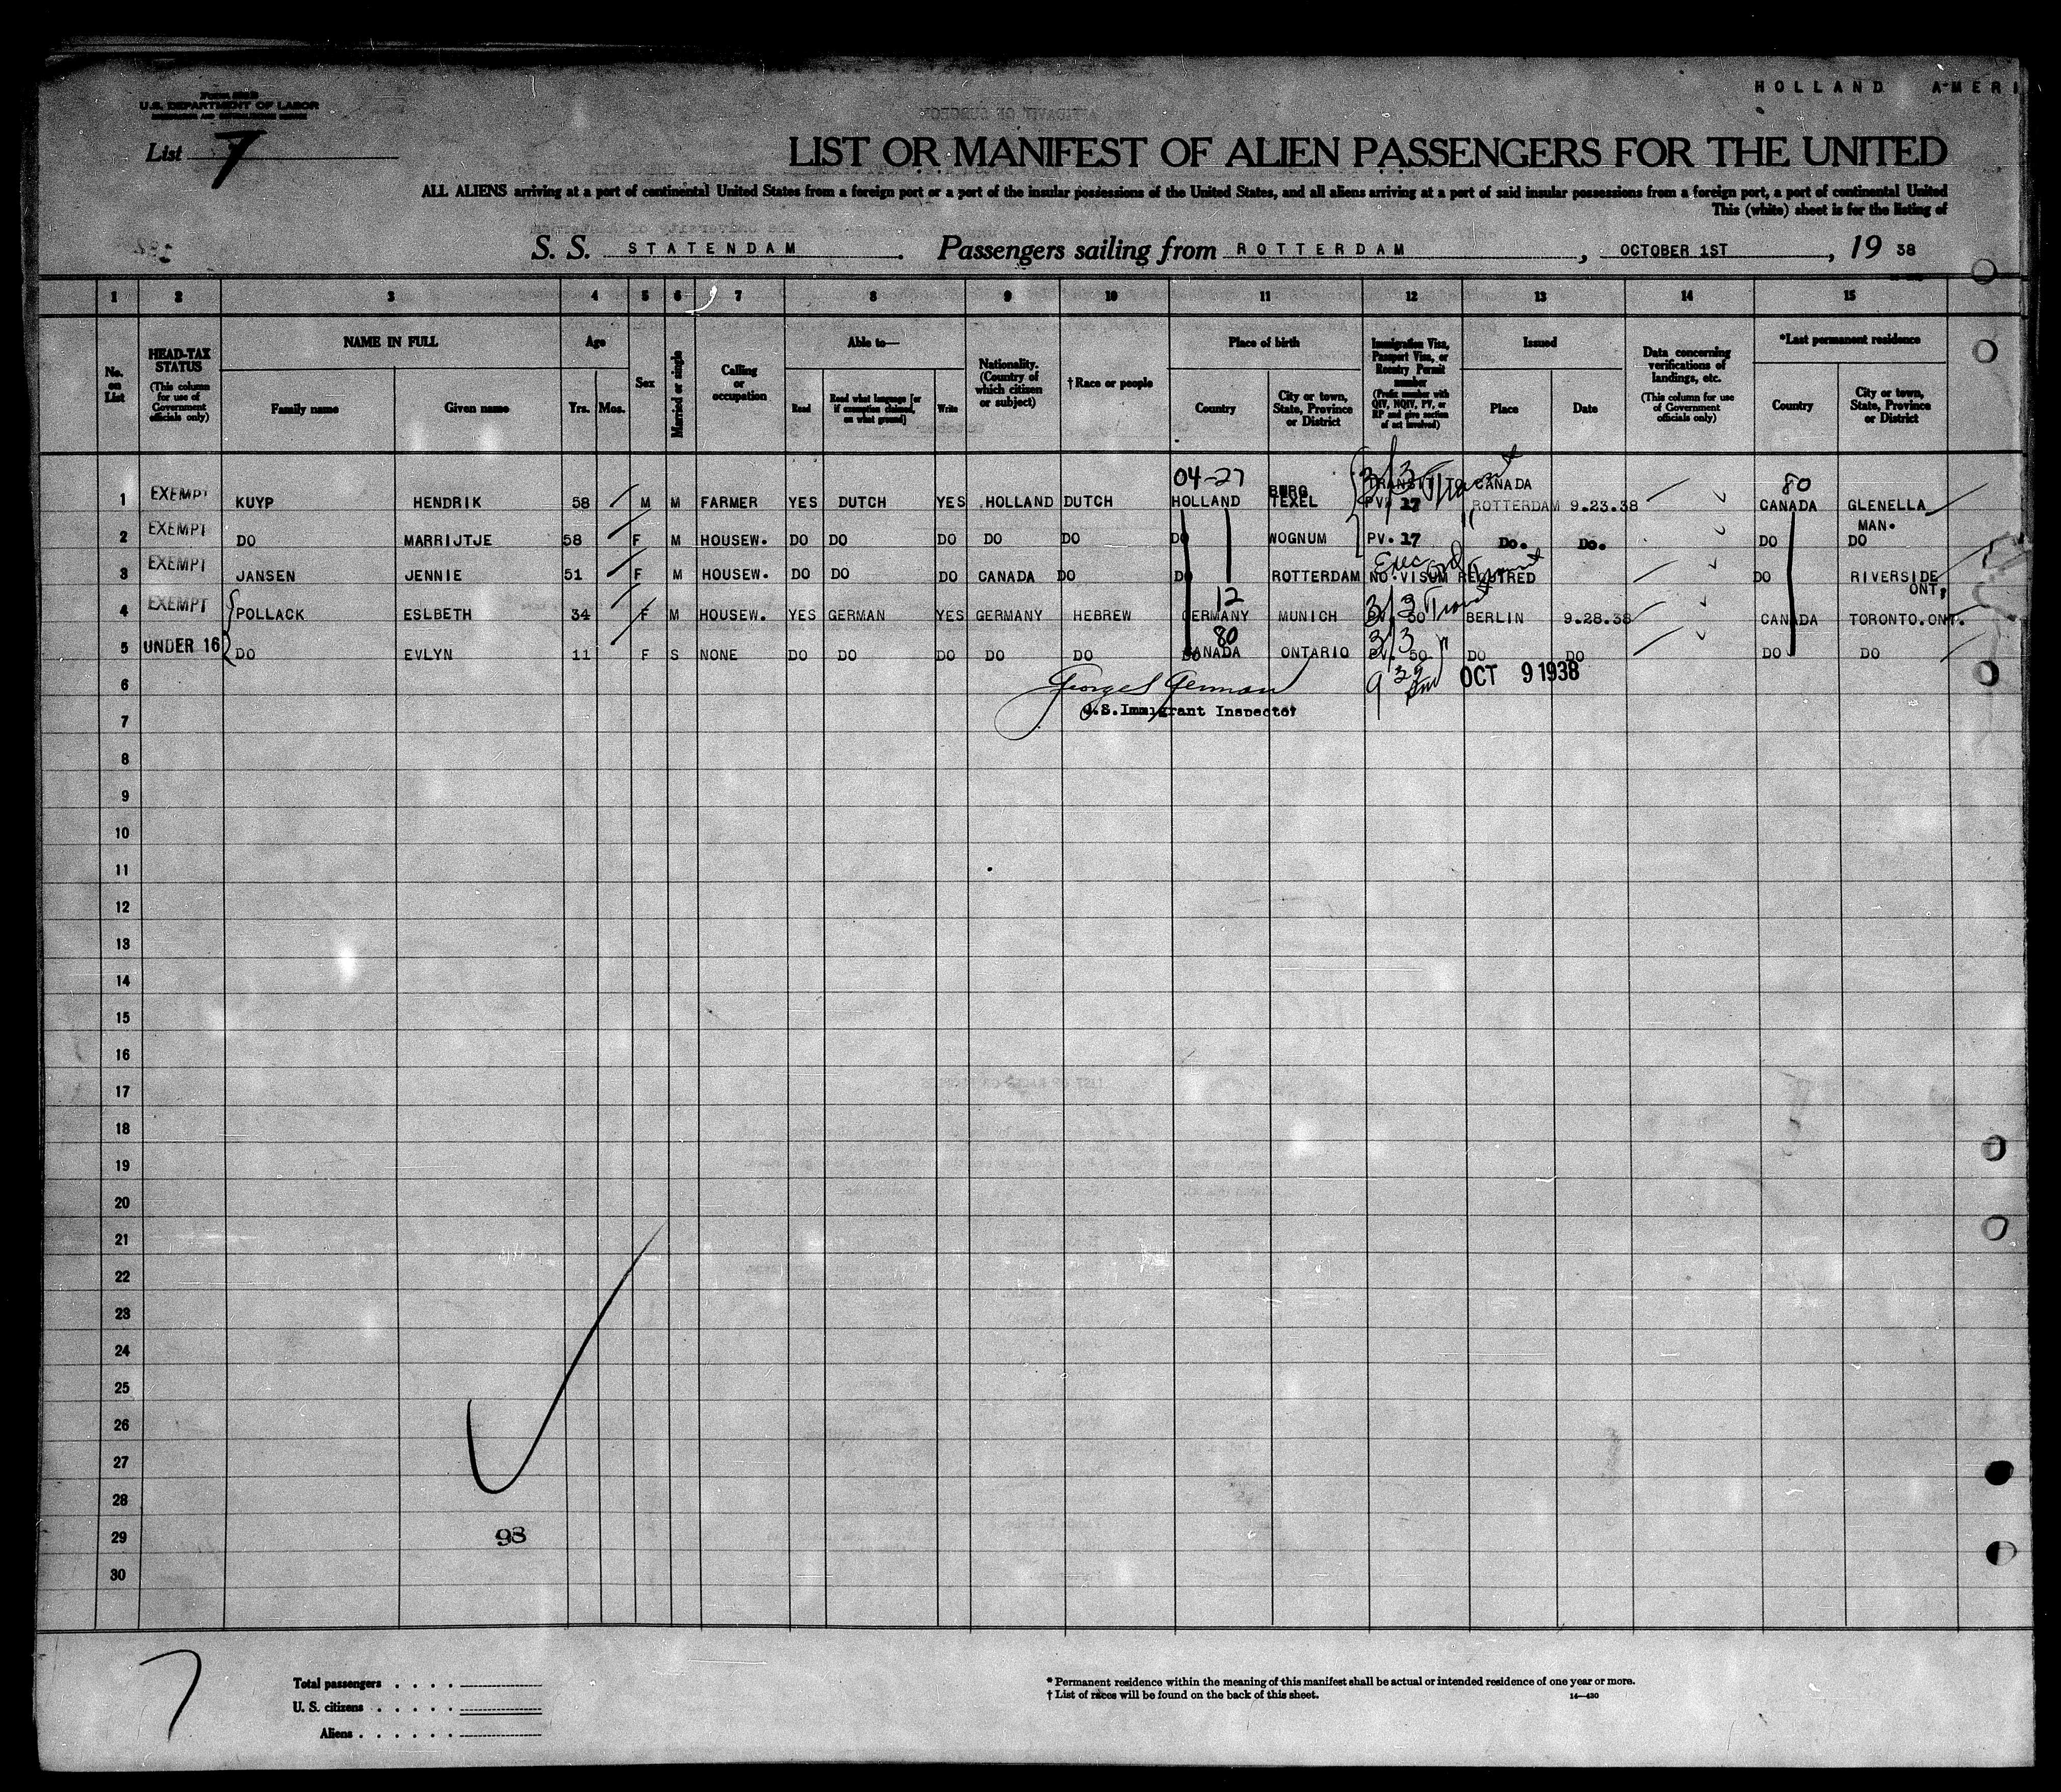 HOLLAND AMERI
U.S. DEPARTMENT OF LABOR
List 7
LIST OR MANIFEST OF ALIEN PASSENGERS FOR THE UNITED
ALL ALIENS arriving at a port of continental United States from a foreign port or a port of the insular possessions of the United States, and all aliens arriving at a port of said insular possessions from a foreign port, a port of continental United
This (white) sheet is for the listing of
S. S. STATENDAM. Passengers sailing from ROTTERDAM, OCTOBER 1ST, 19 38
1 2 3 4 5 6 7 8 9 10 11 12 13 14 15
No. on List
HEAD-TAX STATUS (This column for use of Government officials only)
NAME IN FULL
Family name
Given name
Age
Yrs. Mos.
Sex
Married or single
Calling or occupation
Able to—
Read
Read what language [or if exemption claimed, on what ground]
Write
Nationality. (Country of which citizen or subject)
† Race or people
Place of birth
Country
City or town, State, Province or District
Immigration Visa, Passport Visa, or Reentry Permit number (Prefix number with QIV, NQIV, PV, or RP and give section of act involved)
Issued
Place
Date
Data concerning verifications of landings, etc. (This column for use of Government officials only)
*Last permanent residence
Country
City or town, State, Province or District
04-27 3/3 Transit 80
BURG TRANSIT TO CANADA
1 EXEMPT KUYP HENDRIK 58 M M FARMER YES DUTCH YES HOLLAND DUTCH HOLLAND TEXEL PV. 17 ROTTERDAM 9.23.38 CANADA GLENELLA
MAN.
2 EXEMPT DO MARRIJTJE 58 F M HOUSEW. DO DO DO DO DO DO WOGNUM PV. 17 " Do. Do. DO DO
3 EXEMPT JANSEN JENNIE 51 F M HOUSEW. DO DO DO CANADA DO DO ROTTERDAM NO VISUM REQUIRED DO RIVERSIDE
ONT,
12 3/3 Transit
4 EXEMPT POLLACK ESLBETH 34 F M HOUSEW. YES GERMAN YES GERMANY HEBREW GERMANY MUNICH PV. 50 BERLIN 9.28.38 CANADA TORONTO.ONT.
80 3/3 "
5 UNDER 16 DO EVLYN 11 F S NONE DO DO DO DO DO CANADA ONTARIO PV. 50 DO DO DO DO
6 OCT 9 1938
7 U.S. Immigrant Inspector
8
9
10
11
12
13
14
15
16
17
18
19
20
21
22
23
24
25
26
27
28
29 98
30
7
Total passengers
U. S. citizens
Aliens
* Permanent residence within the meaning of this manifest shall be actual or intended residence of one year or more.
† List of races will be found on the back of this sheet.
14—430